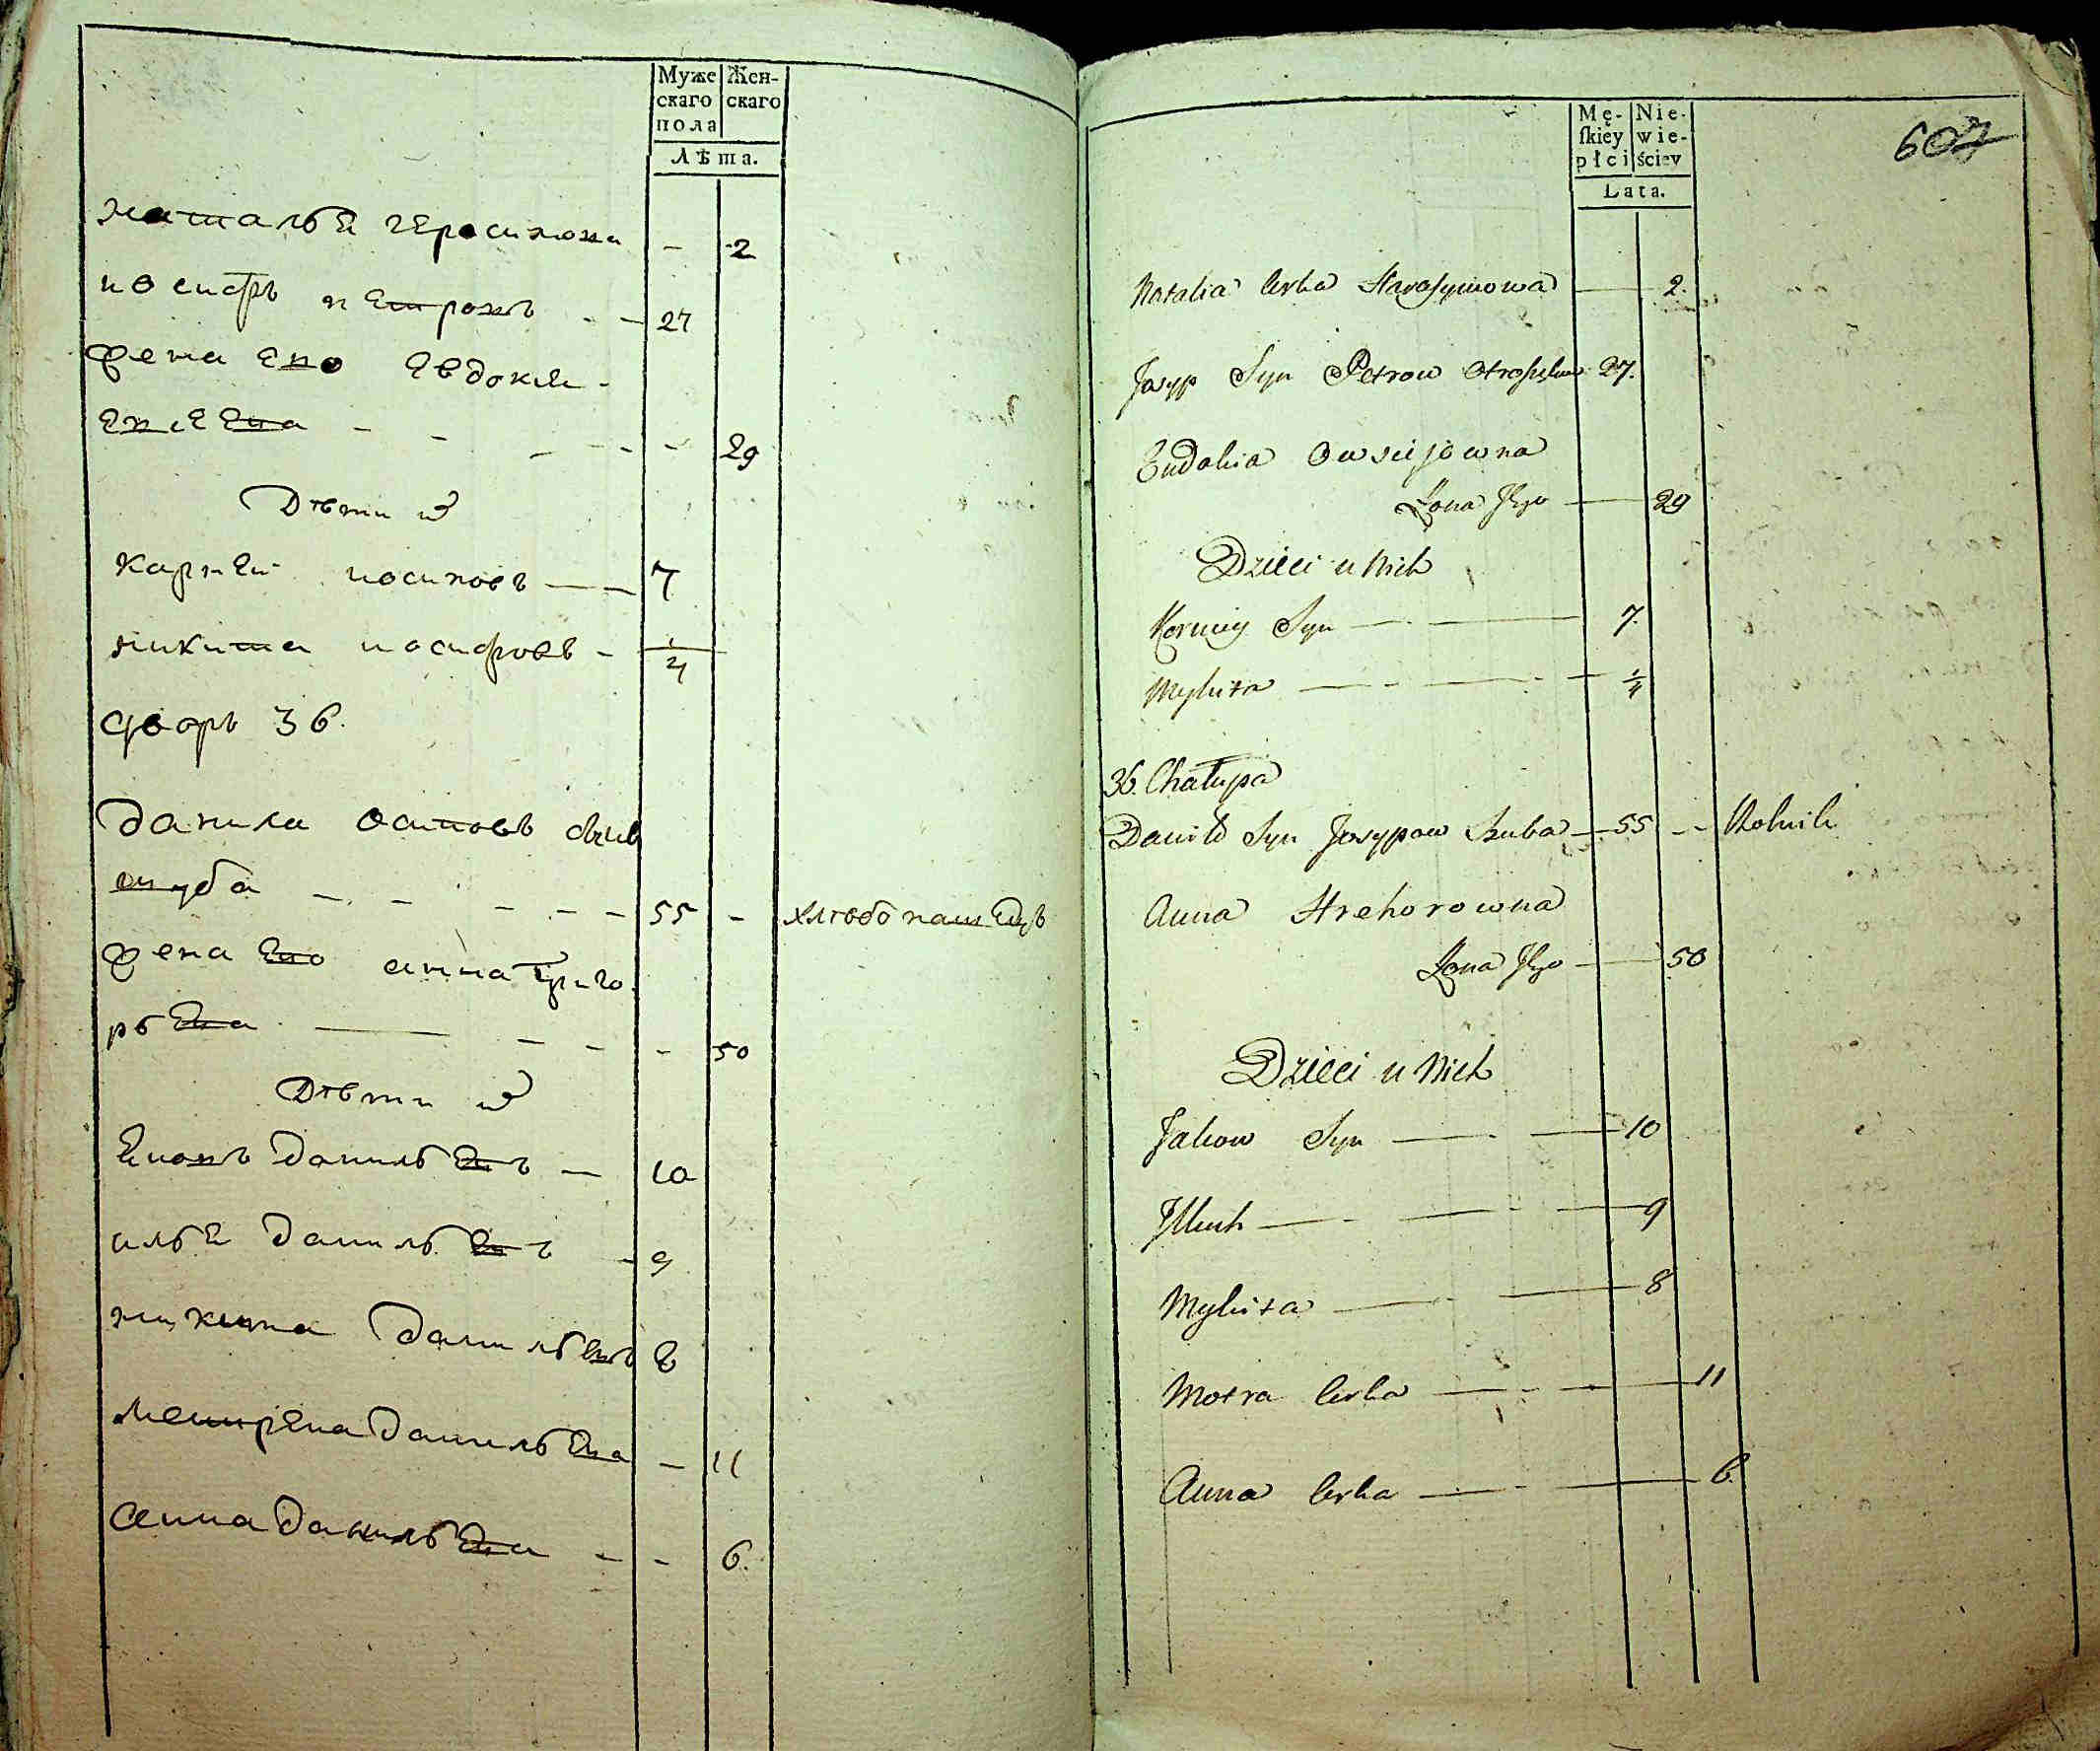 Муже
скаго
пола
Жен-
скаго
Лѣта.
наталья герасимова - 2
иосифъ петровъ - - 27
жена его Евдокия
- - - - - 29
Дѣти их
Карней иосиповъ - - 7
никита иосифовъ - 1/4
дворъ 36.
данила осиповъ сынъ
шуба - - - - - 55 - хлѣбопашецъ
жена его анна григо
рьева - - - - 50
Дѣти их
Яковъ данильевъ - 10
илья данильевъ - 9
никита данильевъ 8
матрена данильева - 11
анна данильева - - 6.
Mę-
skiey
płci
Nie-
wie-
ściey
Lata.
607
Natalia Cerka Harasymowa - 2.
Josyp Syn Petrow 27.
Eudokia Owsiijowna
Żona Jego - 29
Dzieci u Nich
Korniey Syn - - 7.
Mykita - - - - 1/4
36. Chałupa
Daniło Syn Josypow Szuba - 55 - - Rolnik
Anna Hrehorowna
Żona Jego - 50
Dzieci u Nich
Jakow Syn - - 10
Illiuk - - - 9
Mykita - - 8
Motra Cerka - - - 11
Anna Cerka - - - 6.